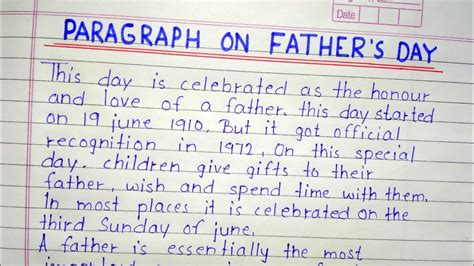 Date
PARAGRAPH ON FATHER'S DAY
This day is celebrated as the honour
and love of a father. this day started
on 19 june 1910. But it got official
recognition in 1972. On this special
day. children give gifts to their
father, wish and spend time with them.
In most places it is celebrated on the
third Sunday of june.
A father is essentially the most